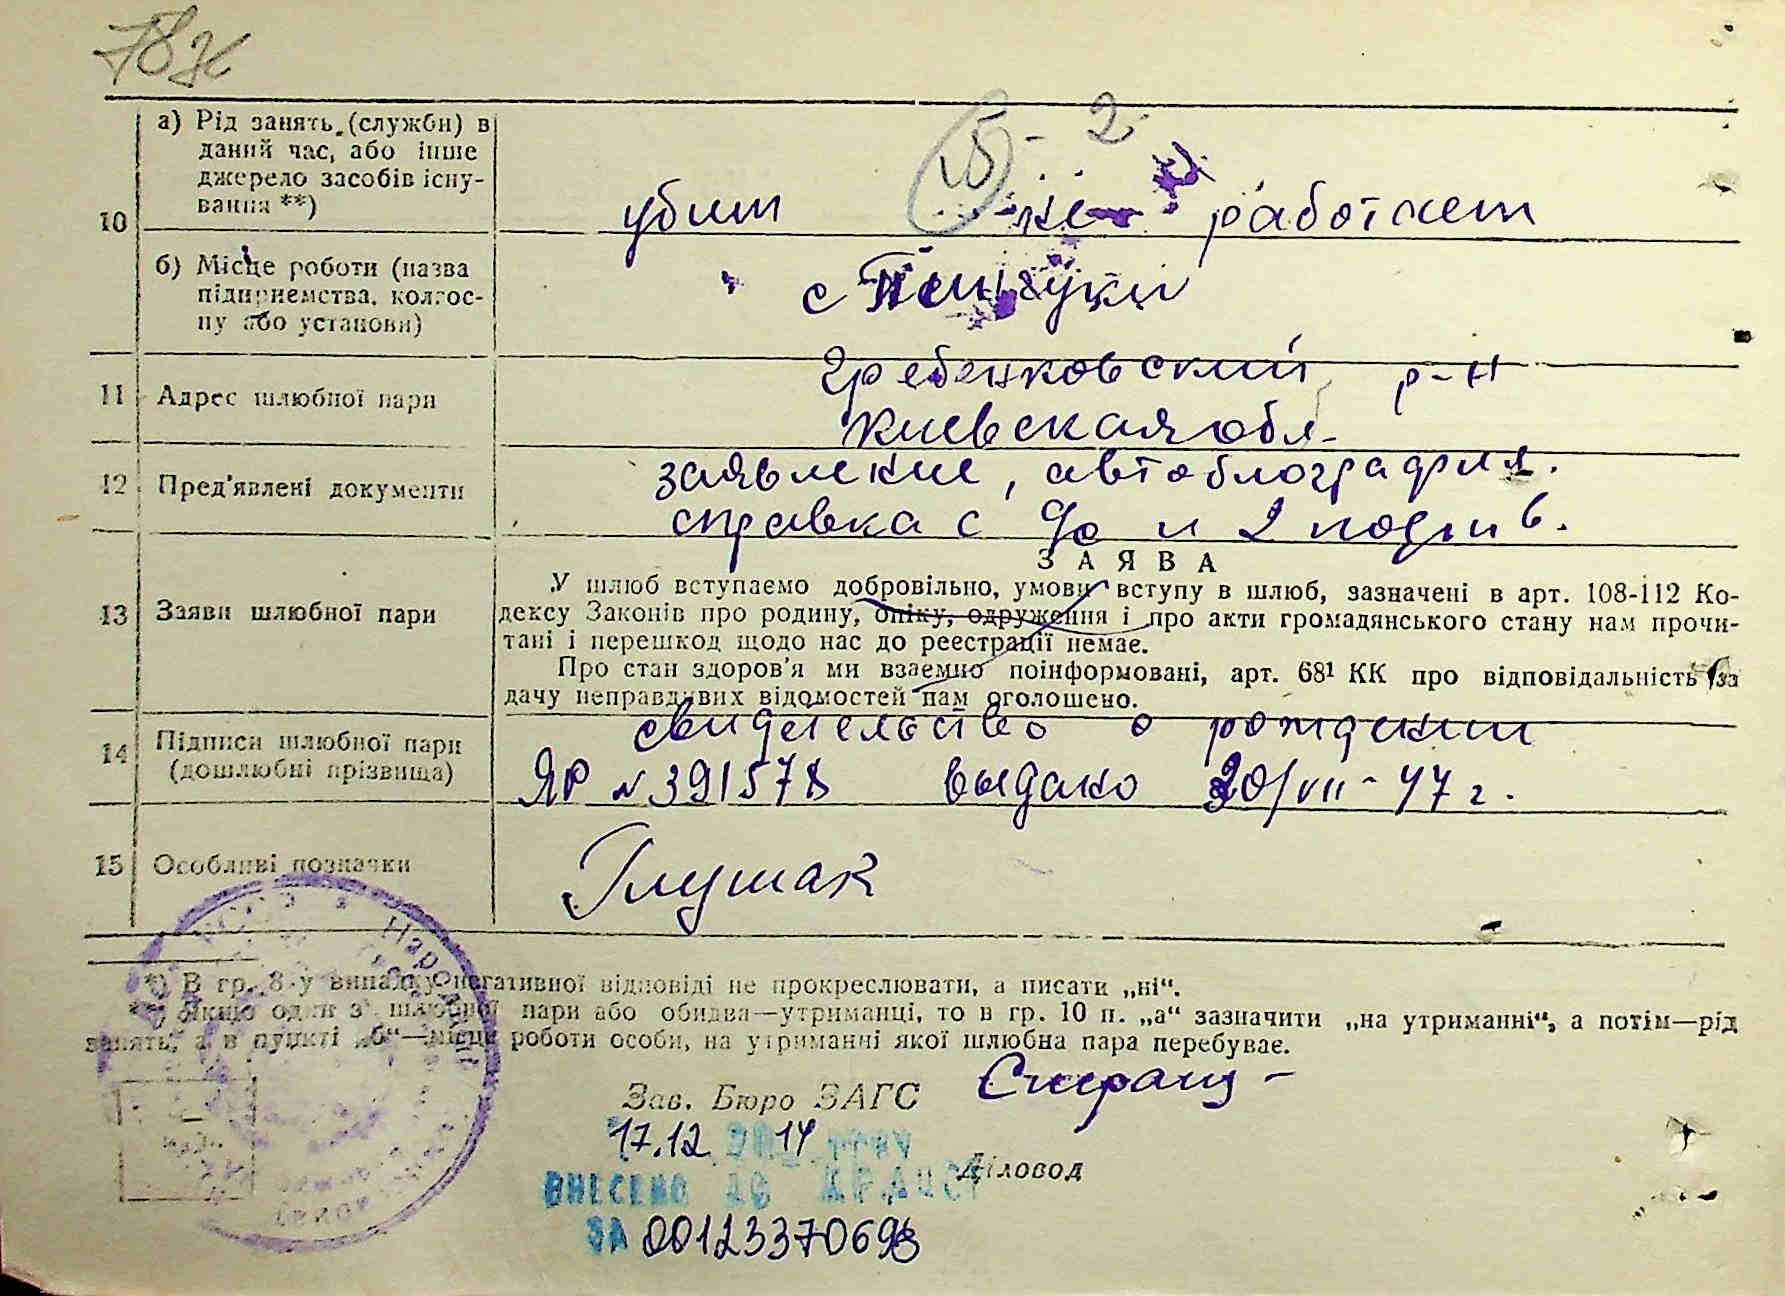 78ж
5 - 2
10
а) Рід занять (служби) в
даний час, або інше
джерело засобів існу-
вання **)
убит не работает
б) Місце роботи (назва
підприємства, колгос-
пу або установи)
с
11 Адрес шлюбної пари
Гребенковский р-н
Киевская обл-
12 Пред'явлені документи
заявление, автобиография.
справка с
ЗАЯВА
13 Заяви шлюбної пари
У шлюб вступаємо добровільно, умови вступу в шлюб, зазначені в арт. 108-112 Ко-
дексу Законів про родину, опіку, одруження і про акти громадянського стану нам прочи-
тані і перешкод щодо нас до реєстрації немає.
Про стан здоров'я ми взаємно поінформовані, арт. 68¹ КК про відповідальність за
дачу неправдивих відомостей нам оголошено.
14 Підписи шлюбної пари
(дошлюбні прізвища)
свидетельство о рождении
ЯР № 391578 выдано 20/VII-47 г.
15 Особливі позначки
Глушак
*) В гр. 8 у випадку негативної відповіді не прокреслювати, а писати „ні“.
**) Якщо один з шлюбної пари або обидва—утриманці, то в гр. 10 п. „а“ зазначити „на утриманні“, а потім—рід
занять, а в пункті „б“—місце роботи особи, на утриманні якої шлюбна пара перебуває.
Зав. Бюро ЗАГС
17.12. 2014 року
Діловод
ВНЕСЕНО ДО ДРАЦСГ
ЗА 00123370693